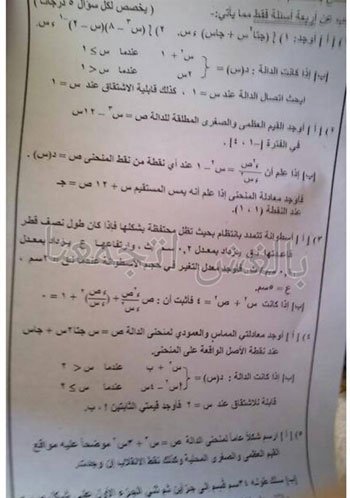 أجب عن أربعة أسئلة فقط مما يأتي: ( يخصص لكل سؤال ٥ درجات )
١) [أ] أوجد: ١) ∫ (جتا٢س + جاس) ءس. ٢) ∫ (س٣ − ٨)(س − ٢)−١ ءس.
[ب] إذا كانت الدالة : د(س) = س٢ + ١ عندما س ≤ ١
٢س عندما س > ١
ابحث اتصال الدالة عند س = ١ ، كذلك قابلية الاشتقاق عند س = ١
٢) [أ] أوجد القيم العظمى والصغرى المطلقة للدالة ص = س٣ − ١٢س
في الفترة [−١ ، ٤] .
[ب] إذا علم أن ء٢ص/ءس٢ = س٢ − ١ عند أي نقطة من نقط المنحنى ص = د(س) .
فأوجد معادلة المنحنى إذا علم أنه يمس المستقيم س + ١٢ ص = جـ
عند النقطة (١ ، ١)
٣) [أ] أسطوانة تتمدد بانتظام بحيث تظل محتفظة بشكلها فإذا كان طول نصف قطر
قاعدتها نق يزداد بمعدل ٠,٢ / ث ، وارتفاعها ع يزداد بمعدل
فأوجد معدل التغير في حجم الأسطوانة عندما نق
ع = ٥سم.
[ب] إذا كانت س٢ + ص٢ = ٤ فأثبت أن : ص ء٢ص/ءس٢ + (ءص/ءس)٢ + ١ = ٠
٤) [أ] أوجد معادلتي المماس والعمودي لمنحنى الدالة ص = س جتا٢س + جاس
عند نقطة الأصل الواقعة على المنحنى.
[ب] إذا كانت الدالة : د(س) = س٢ + ب عندما س > ٢
أس٢ − ٤س عندما س ≤ ٢
قابلة للاشتقاق عند س = ٢ فأوجد قيمتي الثابتين أ ، ب.
٥) [أ] ارسم شكلاً عاماً لمنحنى الدالة ص = س٣ + ٣س٢ موضحاً عليه مواقع
القيم العظمى والصغرى المحلية وكذلك نقط الانقلاب إن وجدت.
[ب] سلك طوله